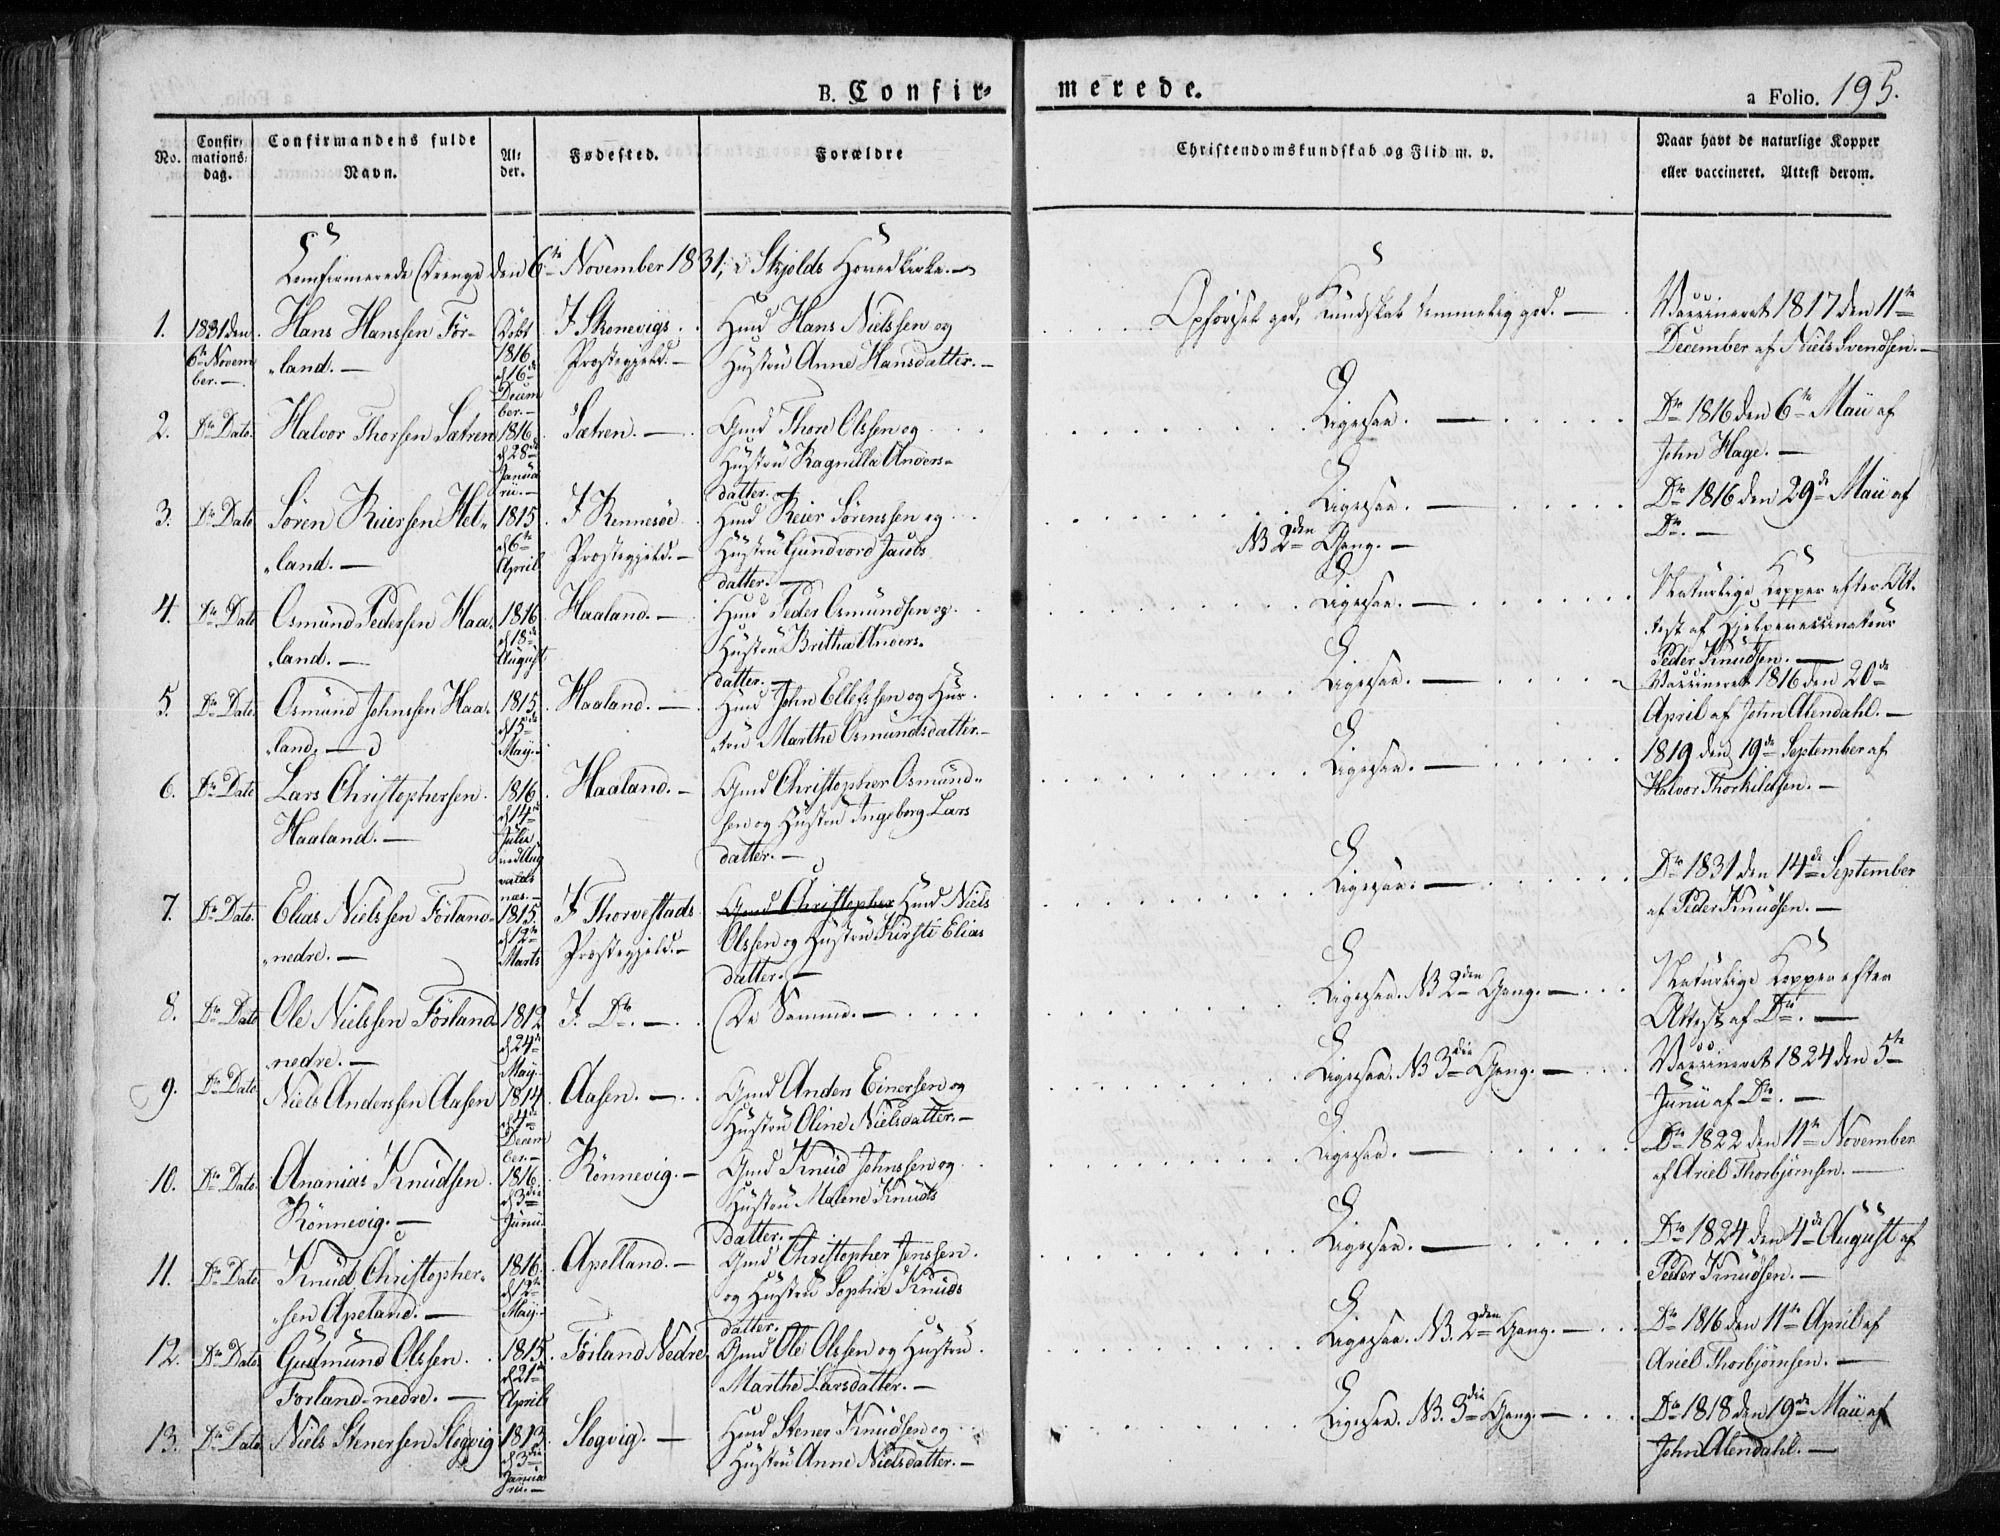 B. Confir-
merede.
a Folio. 195.
No.
Confir-
mations-
dag.
Confirmandens fulde
Navn.
Al-
der.
Fødested.
Forældre
Christendomskundskab og Flid m. v.
Naar havt de naturlige Kopper
eller vaccineret. Attest derom.
Confirmerede Drenge den 6te November 1831, i Skjolds Hovedkirke.
1.
1831 den
6te Novem
ber.
Hans Hanssen För-
land.
Döbt
1816
d 16de
Decem
ber.
I Skonevigs
Præstegjeld.
Hmd Hans Nielssen og
Hustrü Anne Hansdatter.
Opförsel god, Kundskab temmelig god.
Vaccineret 1817 den 11te
December af Niels Svendsen.
2.
Do Dato.
Halvor Thorsen Sætren
1816
d 28de
Janua
rii.
Sætren.
Gmd Thore Olssen og
Hüstrü Ragnilla Anders-
datter.
Ligesaa.
Do 1816 den 6te Maii af
John Hage.
3.
Do Dato
Sören Reiersen Hel-
land.
1815
d 6te
April
I Rennesöe
Præstegjeld.
Hmd Reier Sörenssen og
Hüstrü Gundvord Jacobs
datter.
Ligesaa.
NB 2den Gang.
Do 1816 den 29de Maii af
Do.
4.
Do Dato
Osmünd Pedersen Haa-
land.
1816
d 18de
August
Haaland.
Hmd Peder Osmündsen og
Hüstrü Britha Anders-
datter.
Ligesaa.
Naturlige Kopper efter At-
test af Hjelpevaccinateur
Peder Knudsen.
5.
Do Dato
Osmünd Johnssen Haa-
land.
1815
d 15de
May.
Haaland.
Hmd John Ellefssen og Hüs-
trü Marthe Osmundsdatter.
Ligesaa.
Vaccineret 1816 den 20de
April af John Alendahl.
6.
Do Dato
Lars Christophersen
Haaland.
1816
d 14de
Julii
Haaland.
Gmd Christopher Osmünd-
sen og Hustrü Ingeborg Lars
datter.
Ligesaa.
1819 den 19de September af
Halvor Thorkildsen.
7.
Do Dato.
Elias Nielssen Förland
nedre.
1815
d 12te
Marts
I Thorvestads
Præstegjeld.
Gmd Christopher Hmd Niels
Olssen og Hüstrü Kirsti Elias
datter.
Ligesaa.
Do 1831 den 14de September
af Peder Knudsen.
8.
Do Dato
Ole Nielssen Förland
nedre.
1812
d 24de
May.
I. Do.
De Samme.
Ligesaa. NB 2den Gang.
Naturlige Kopper efter
Attest af Do.
9.
Do Dato
Niels Anderssen Aasen
1814
d 4de
Decem
ber.
Aasen.
Gmd Anders Einersen og
Hüstrü Oline Nielsdatter.
Ligesaa. NB 3die Gang.
Vaccineret 1824 den 5te
Junii af Do.
10.
Do Dato.
Ananias Knudsen
Rönnevig.
1816
d 3die
Junii
Rönnevig.
Gmd Knud Johnssen og
Hustrü Malene Knuds
datter.
Ligesaa.
Do 1822 den 11te November
af Ariel Thorbjørnsen.
11.
Do Dato.
Knud Christopher-
sen Apeland.
1816
d 12te
May.
Apelland.
Gmd Christopher Jenssen
og Hüstrü Sophie Knuds
datter.
Ligesaa.
Do 1824 den 4de August af
Peder Knudsen.
12.
Do Dato.
Gudmund Olssen
Forland nedre.
1815
d 21de
April
Förland Nedre
Gmd Ole Olssen og Hustrü
Marthe Larsdatter.
Ligesaa. NB. 2den Gang.
Do 1816 den 11te April af
Ariel Thorbjørnsen.
13.
Do Dato
Niels Stenersen Slogvig
1813
d 3die
Janua
rii.
Slogvig.
Hmd Stener Knudsen og
Hustrü Anne Nielsdatter.
Ligesaa. NB. 3die Gang.
Do 1818 den 19de Maii af
John Alendahl.